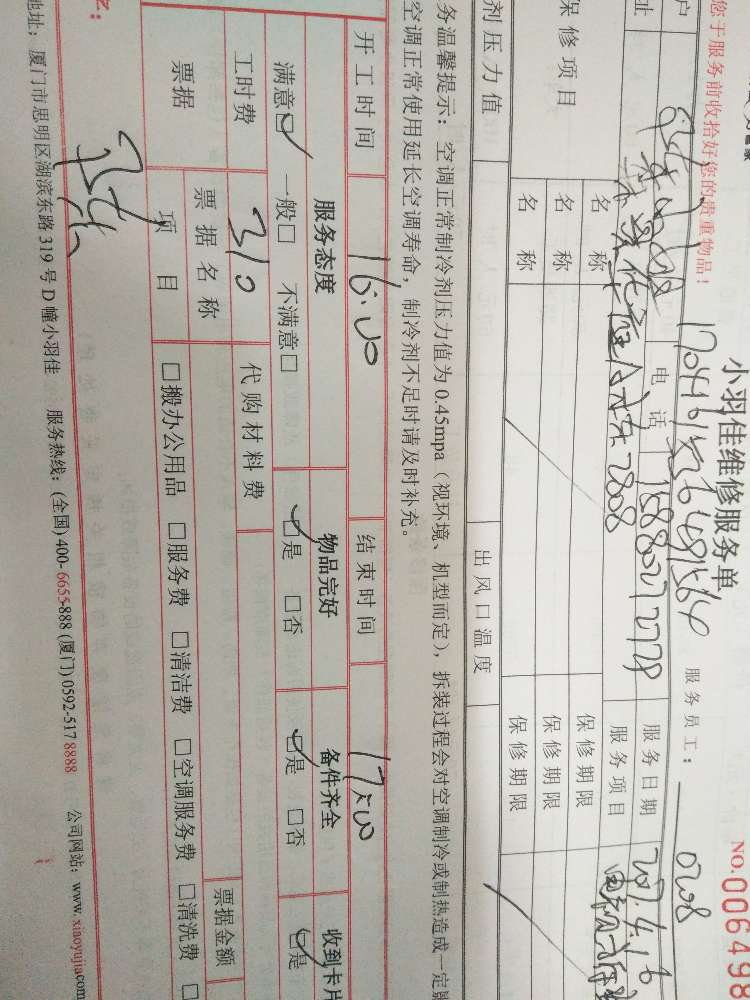 小羽佳维修服务单
NO.006498
您于服务前收拾好您的贵重物品！
服务员工： 0208
户 电话 15880272778 服务日期 2017.4.16
址 2808 服务项目
保修项目 名称 保修期限
名称 保修期限
名称 保修期限
剂压力值 出风口温度
务温馨提示：空调正常制冷剂压力值为0.45mpa（视环境、机型而定），拆装过程会对空调制冷或制热造成一定
空调正常使用延长空调寿命，制冷剂不足时请及时补充。
开工时间 16:00 结束时间 17:00
服务态度 物品完好 备件齐全 收到卡片
满意☑ 一般□ 不满意□ ☑是 □否 ☑是 □否 ☑是
工时费 310 代购材料费
票据 票据名称 票据金额
项目 □搬办公用品 □服务费 □清洁费 □空调服务费 □清洗费 □
地址：厦门市思明区湖滨东路319号D幢小羽佳 服务热线：(全国)400-6655-888 (厦门)0592-517 8888 公司网站：www.xiaoyujia.com